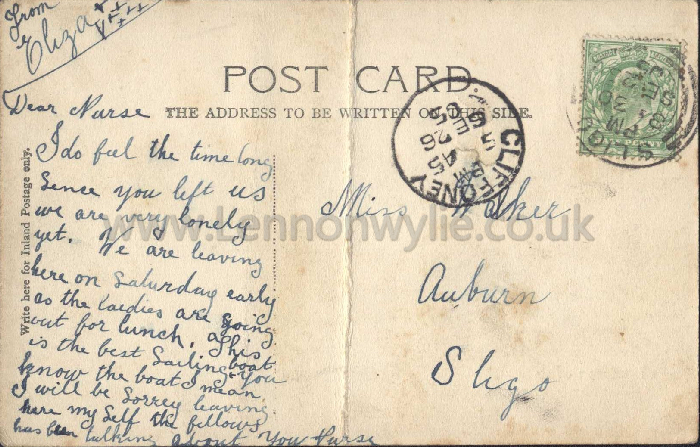 From
Eliza
POST CARD.
THE ADDRESS TO BE WRITTEN ON THIS SIDE.
Write here for Inland Postage only.
Dear Nurse
I do feel the time long
Sence you left us
we are very lonely
yet. We are leaving
here on Saturday early
as the laidies are going
out for lunch, This
is the best Sailing boat
know the boat I mean You
I will be Sorrey leaving
here my self the fellows
has been talking about You Nurse
Miss Walker
Auburn
Sligo
CLIFFONEY
SLIGO
www.Lennonwylie.co.uk